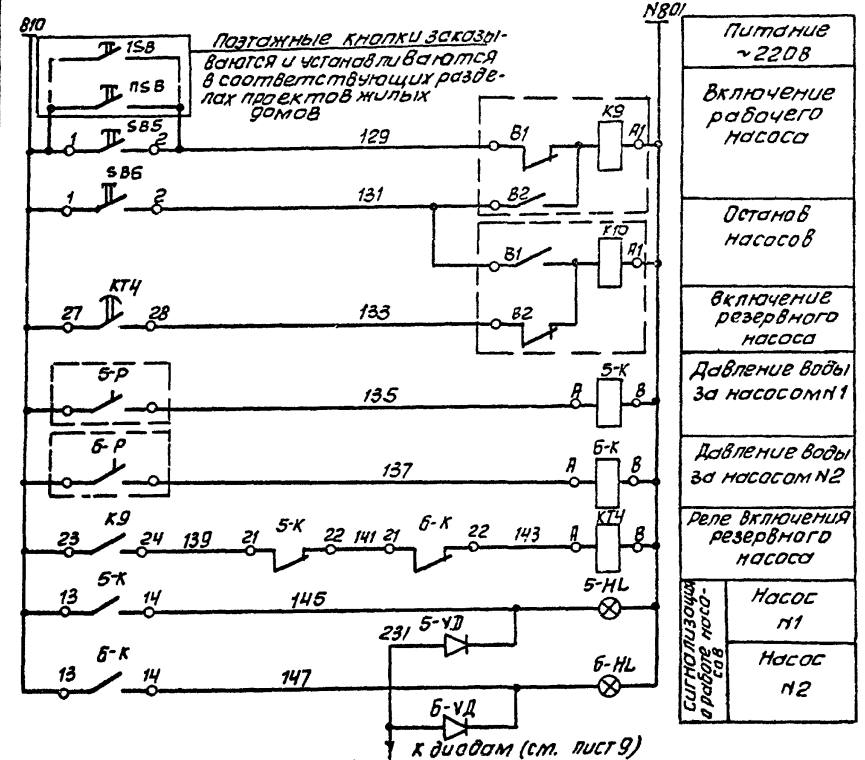 810
N801
1SB
Поэтажные кнопки заказы-
ваются и устанавливаются
в соответствующих разде-
лах проектов жилых
домов
nSB
SB5
1
2
129
B1
K9
A1
SB6
1
2
131
B2
K10
B1
A1
KT4
27
28
133
B2
5-P
135
A
5-K
B
6-P
137
A
6-K
B
K9
23
24
139
21
5-K
22
141
21
6-K
22
143
A
KT4
B
5-K
13
14
145
5-HL
231
5-VD
6-K
13
14
147
6-HL
6-VД
к диодам (см. лист 9)
Питание
~220В
Включение
рабочего
насоса
Останов
насосов
Включение
резервного
насоса
Давление воды
за насосом N1
Давление воды
за насосом N2
Реле включения
резервного
насоса
Сигнализация
о работе насо-
сов
Насос
N1
Насос
N2